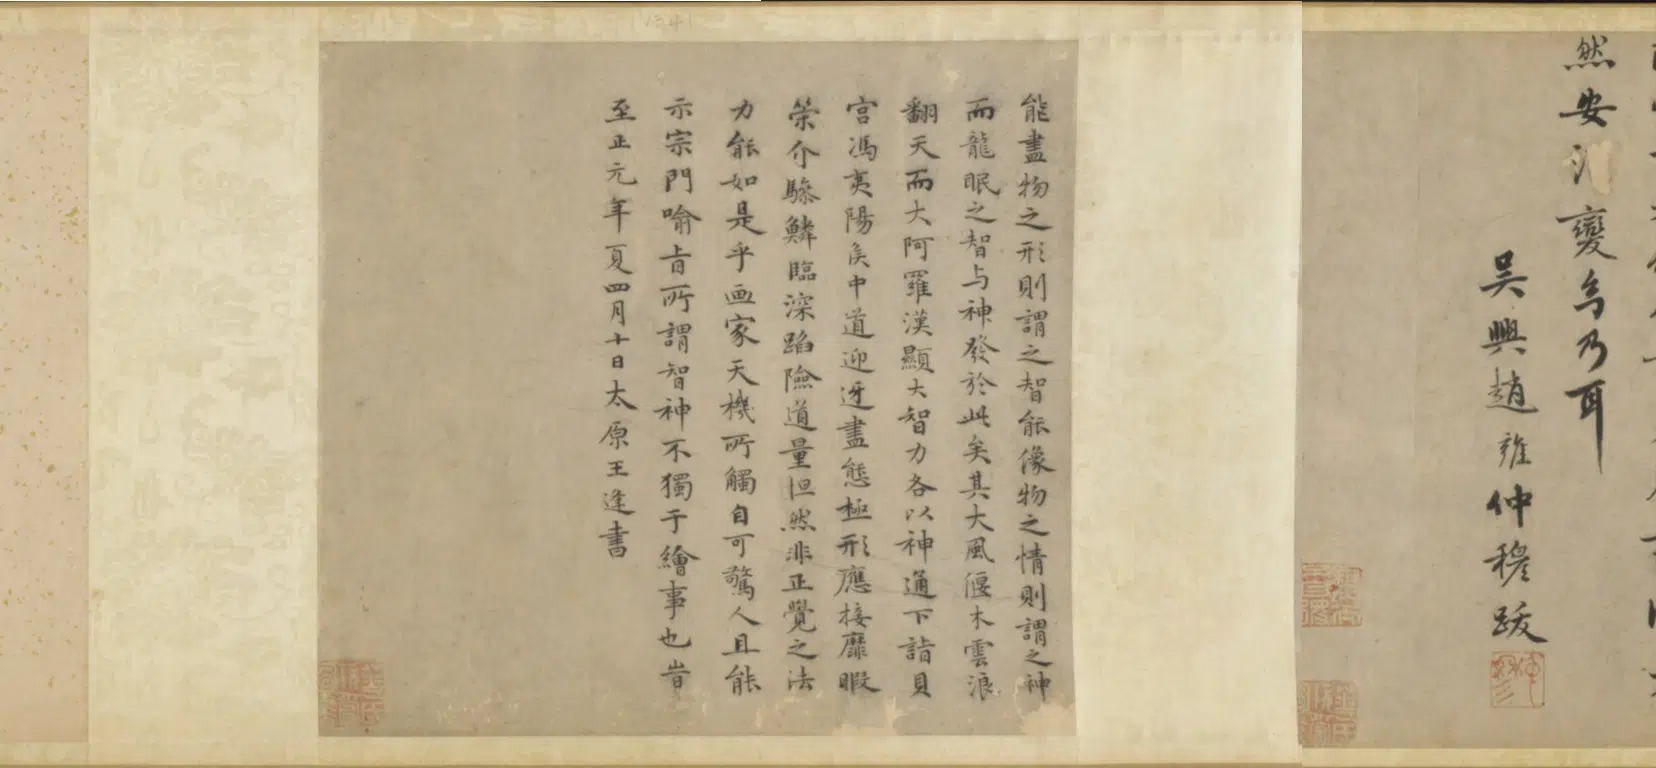 然安變乃耳
吳興趙雍仲穆跋
能盡物之形則謂之智能像物之情則謂之神
而龍眠之智与神發於此矣其大風偃木雲浪
翻天而大阿羅漢顯大智力各以神通下詣貝
宮馮夷陽侯中道迎迓盡態極形應接靡暇
榮介驂鱗臨深蹈險道量怛然非正覺之法
力能如是乎画家天機所觸自可驚人且能
示宗門喻旨所謂智神不獨于繪事也旹
至正元年夏四月十日太原王逢書
1341